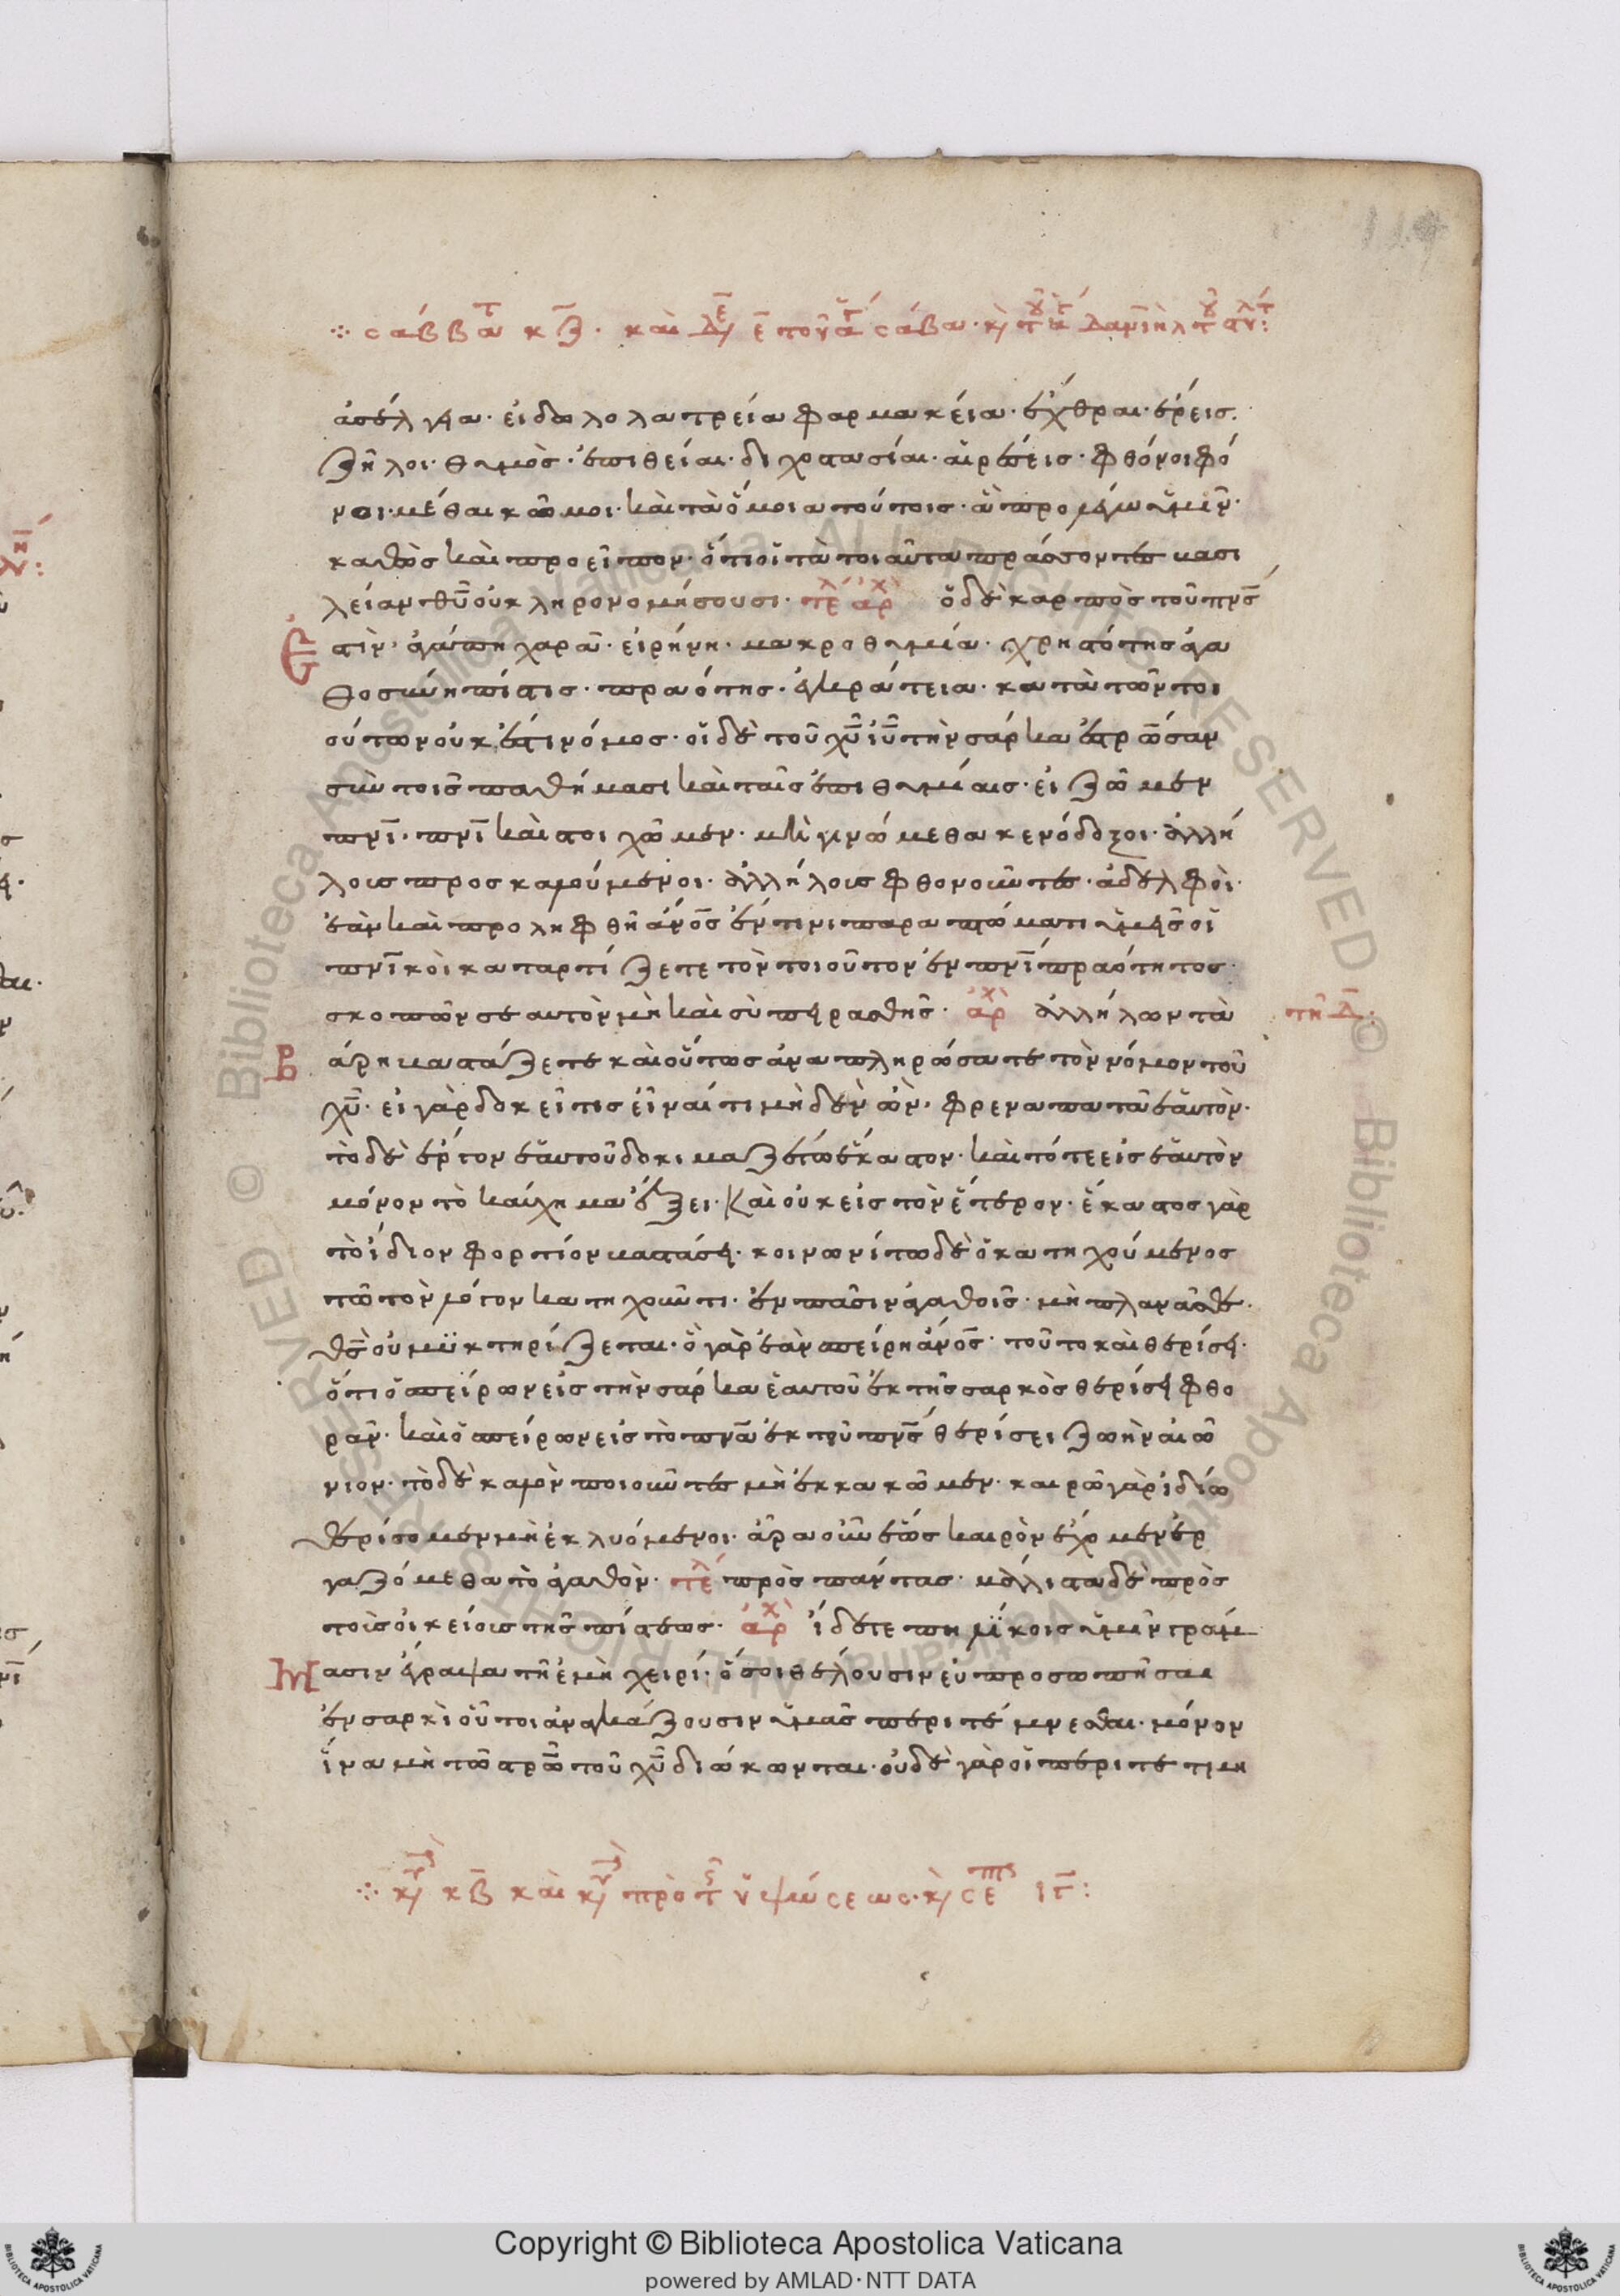 σάββατ κζ. καὶ Δ/ ε τοῦ ἁγ σάβα· κ/ τοῦ ἁγ Δανιὴλ τοῦ στυλτ:
ἀσέλγεια· εἰδωλολατρεία φαρμακεία· ἔχθραι· ἔρεις.
ζῆλοι· θυμὸς· ἐπιθείαι· διχοστασίαι· αἱρέσεις· φθόνοι φό
νοι· μέθαι κῶμοι· καὶ τὰ ὅμοια τούτοις· ἃ προλέγω ὑμῖν·
καθὼς καὶ προεῖπον· ὅτι οἱ τὰ τοιαῦτα πράσσοντες βασι
λείαν θῦ οὐ κληρονομήσουσι· τελ ἀρχ ὁ δὲ καρπὸς τοῦ πνς
ἐστὶν· ἀγάπη χαρὰ· εἰρήνη· μακροθυμία· χρηστότης ἀγα
θοσύνη πίστις· πραότης· ἐγκράτεια· κατὰ τῶν τοι
ούτων οὐκ ἔστι νόμος· οἱ δὲ τοῦ χῦ ἰῦ τὴν σάρκα ἐστρῶσαν
σὺν τοῖς παθήμασι καὶ ταῖς ἐπιθυμίαις· εἰ ζῶμεν
πνι· πνι καὶ στοιχῶμεν· μὴ γινώμεθα κενόδοξοι· ἀλλή
λοις προσκαλούμενοι· ἀλλήλοις φθονοῦντες· ἀδελφοὶ·
ἐὰν καὶ προληφθῆ ἄνος ἔν τινι παραπτώματι ὑμεῖς οἱ
πνικοὶ καταρτίζετε τὸν τοιοῦτον ἐν πνι πραότητος·
σκοπῶν σεαυτὸν μὴ καὶ σὺ πειρασθῆς· ἀρχ ἀλλήλων τὰ τῆ Δ:
βάρη βαστάζετε καὶ οὕτως ἀναπληρώσατε τὸν νόμον τοῦ
χῦ· εἰ γὰρ δοκεῖ τις εἶναί τι μηδὲν ὢν· φρεναπατᾶ ἑαυτὸν·
τὸ δὲ ἔργον ἑαυτοῦ δοκιμαζέτω ἕκαστος· καὶ τότε εἰς ἑαυτὸν
μόνον τὸ καύχημα ἕξει· καὶ οὐκ εἰς τὸν ἕτερον· ἕκαστος γὰρ
τὸ ἴδιον φορτίον βαστάσει· κοινωνίτω δὲ ὁ κατηχούμενος
τῶ τὸν λόγον κατηχοῦντι· ἐν πᾶσιν ἀγαθοῖς· μὴ πλανᾶσθε·
θς οὐ μϋκτηρίζεται· ὃ γὰρ ἐὰν σπείρη ἄνος· τοῦτο καὶ θερίσει·
ὅτι ὁ σπείρων εἰς τὴν σάρκα ἑαυτοῦ ἐκ τῆς σαρκὸς θερίσει φθο
ράν· καὶ ὁ σπείρων εἰς τὸ πνα ἐκ τοῦ πνς θερίσει ζωὴν αἰώ
νιον· τὸ δὲ καλὸν ποιοῦντες μὴ ἐκκακῶμεν· καιρῶ γὰρ ἰδίω
θερίσομεν μὴ ἐκλυόμενοι· ἄρα οὖν ἕως καιρὸν ἔχομεν ἐρ
γαζόμεθα τὸ ἀγαθὸν· τελ πρὸς πάντας· μάλλιστα δὲ πρὸς
τοὺς οἰκείους τῆς πίστεως· ἀρχ ἴδετε πηλΐκοις ὑμῖν γράμ
μασιν ἔγραψα τῆ ἐμῆ χειρί· ὅσοι θέλουσιν εὐπροσωπῆσαι
ἐν σαρκὶ οὗτοι ἀναγκάζουσιν ὑμᾶς περιτέμνεσθαι· μόνον
ἵνα μὴ τῶ στρῶ τοῦ χῦ διώκωνται· οὐδὲ γὰρ οἱ περιτετμη
κυ/ κβ καὶ κυ/ πρὸ τῆς ὑψώσεως· κ/ σεπ ιγ: